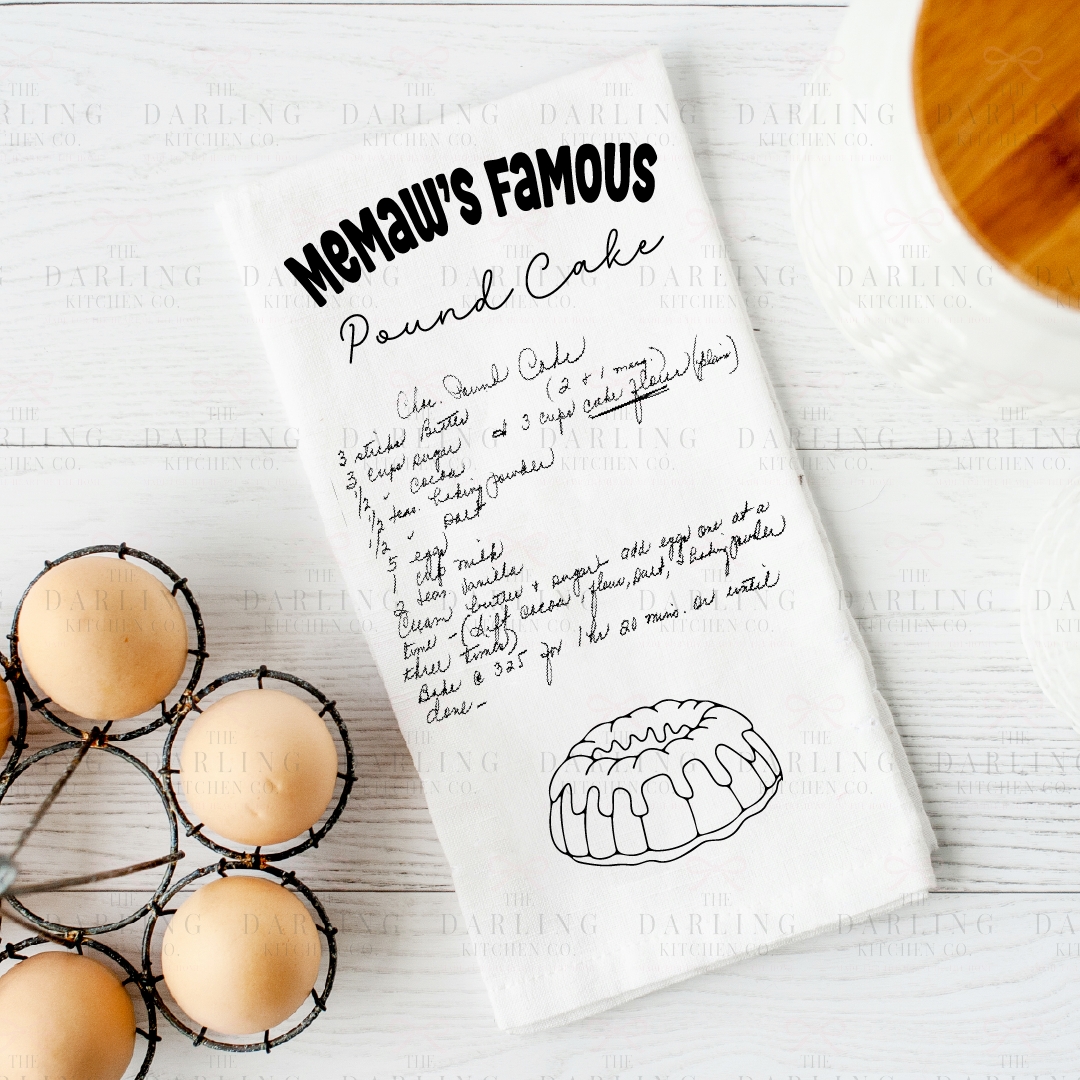 MeMaw's Famous
Pound Cake
Choc. Pound Cake
3 sticks Butter (2 + 1 marg.)
3 cups sugar 3 cups cake flour (plain)
1/2 " cocoa
1/2 teas. baking powder
1/2 " salt
5 eggs
1 cup milk
2 teas. Vanilla
Cream butter + sugar add eggs one at a
time - (sift cocoa, flour, salt, + baking powder
three times)
Bake @ 325 for 1 hr 20 mins. or until
done -
THE
DARLING
KITCHEN CO.